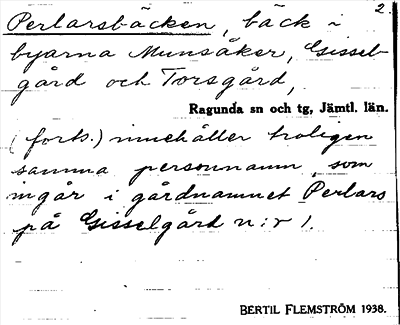 2.
Perlarsbäcken, bäck i
byarna Munsåker, Gissel-
gård och Torsgård,
Ragunda sn och tg, Jämtl. län.
(forts.) innehåller troligen
samma personnamn, som
ingår i gårdnamnet Perlars
på Gisselgård n:r 1.
BERTIL FLEMSTRÖM 1938.